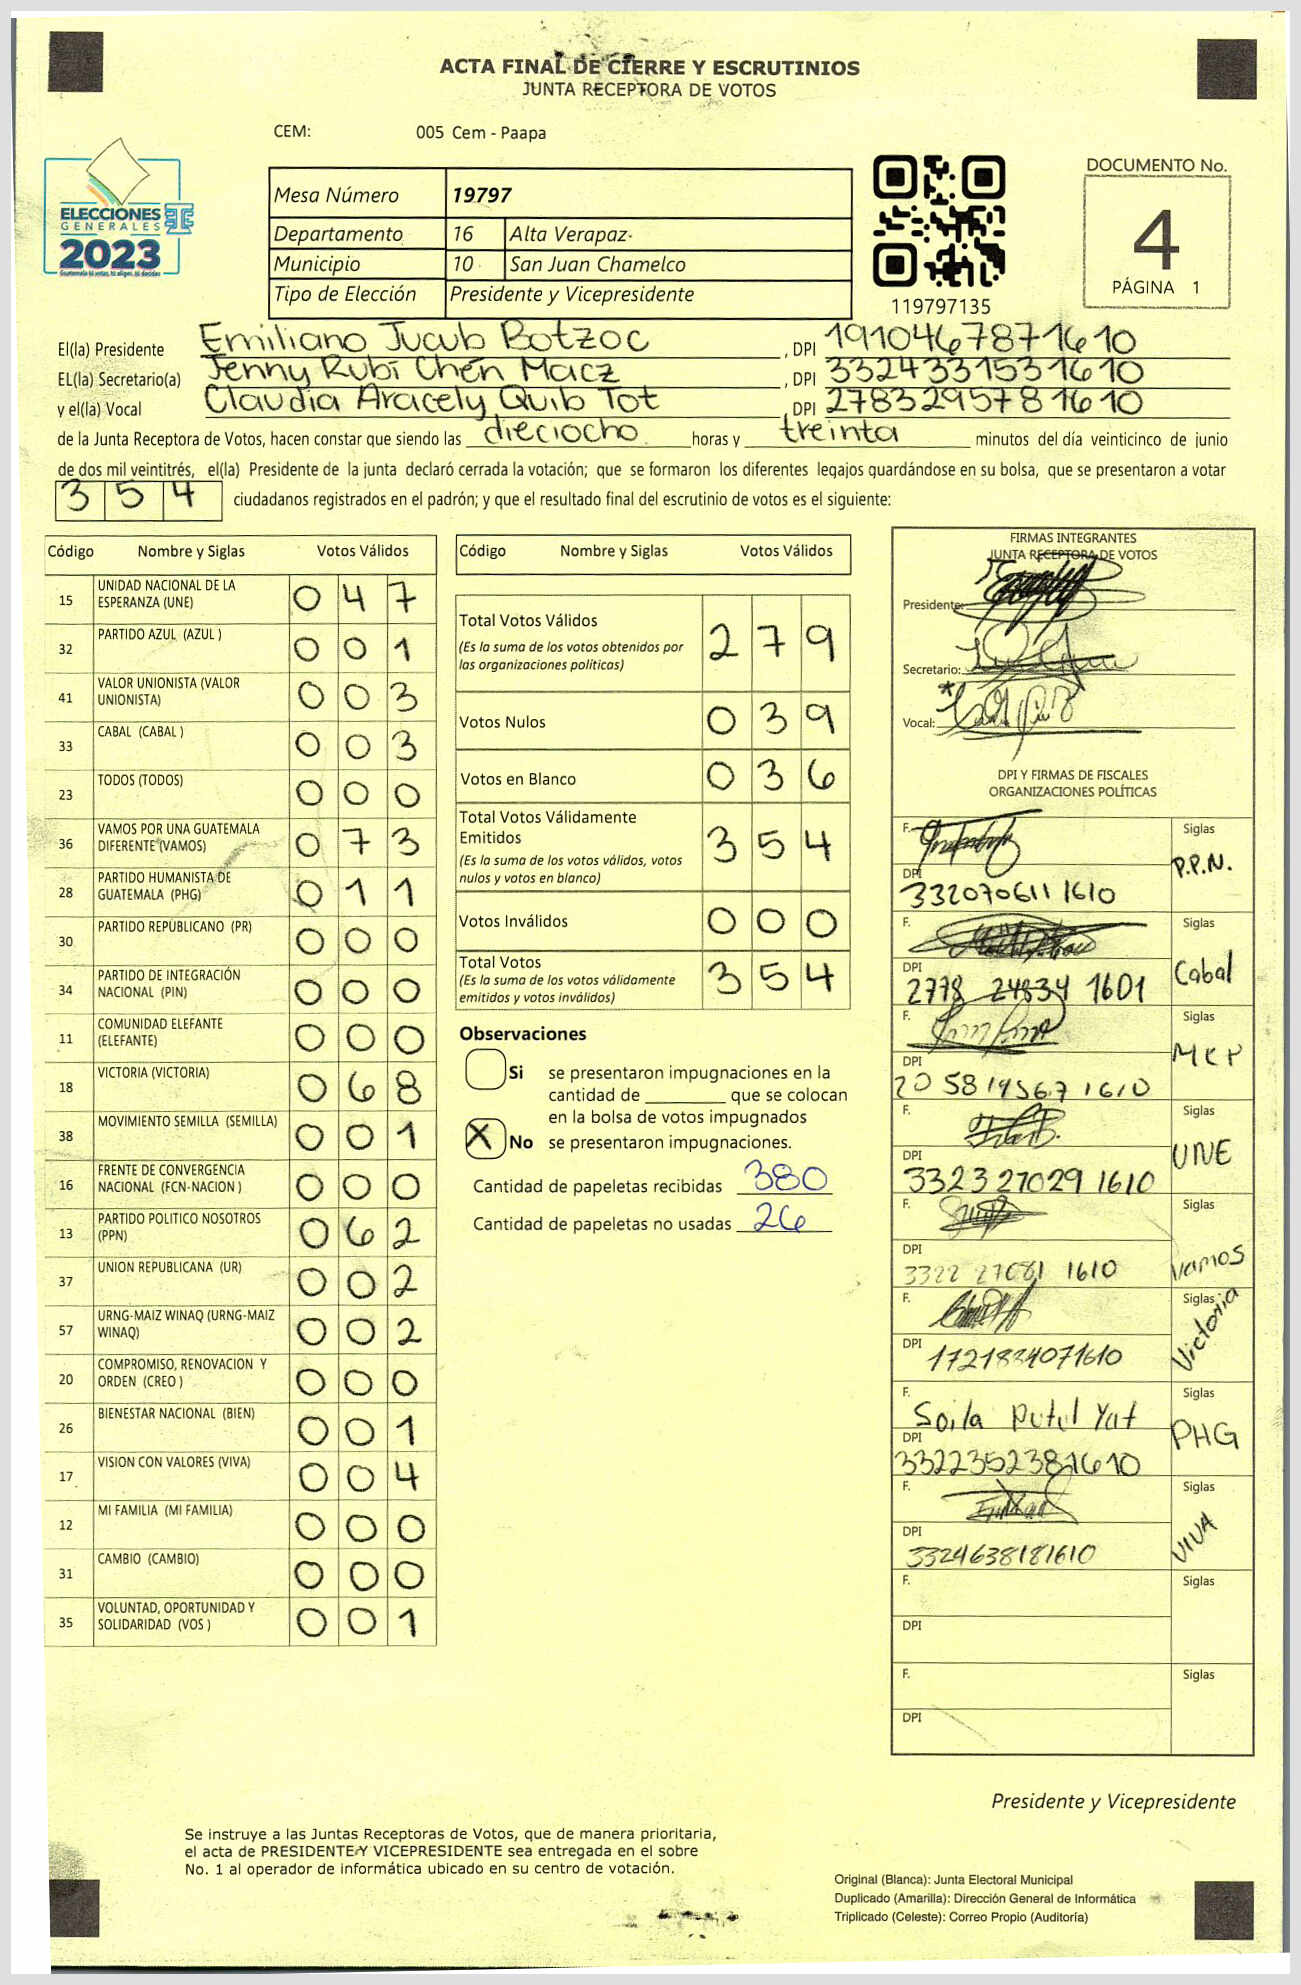 ACTA FINAL DE CIERRE Y ESCRUTINIOS
JUNTA RECEPTORA DE VOTOS
CEM: 005 Cem - Paapa
ELECCIONES
GENERALES
2023
Mesa Número 19797
Departamento 16 Alta Verapaz
Municipio 10 San Juan Chamelco
Tipo de Elección Presidente y Vicepresidente
119797135
DOCUMENTO No.
4
PÁGINA 1
El(la) Presidente Emiliano Jucub Botzoc, DPI 1910467871610
EL(la) Secretario(a) Jenny Rubí Chén Macz, DPI 3324331531610
y el(la) Vocal Claudia Aracely Quib Tot DPI 2783295781610
de la Junta Receptora de Votos, hacen constar que siendo las dieciocho horas y treinta minutos del día veinticinco de junio
de dos mil veintitrés, el(la) Presidente de la junta declaró cerrada la votación; que se formaron los diferentes legajos guardándose en su bolsa, que se presentaron a votar
354 ciudadanos registrados en el padrón; y que el resultado final del escrutinio de votos es el siguiente:
Código Nombre y Siglas Votos Válidos
15 UNIDAD NACIONAL DE LA ESPERANZA (UNE) 0 4 7
32 PARTIDO AZUL (AZUL ) 0 0 1
41 VALOR UNIONISTA (VALOR UNIONISTA) 0 0 3
33 CABAL (CABAL ) 0 0 3
23 TODOS (TODOS) 0 0 0
36 VAMOS POR UNA GUATEMALA DIFERENTE (VAMOS) 0 7 3
28 PARTIDO HUMANISTA DE GUATEMALA (PHG) 0 1 1
30 PARTIDO REPUBLICANO (PR) 0 0 0
34 PARTIDO DE INTEGRACIÓN NACIONAL (PIN) 0 0 0
11 COMUNIDAD ELEFANTE (ELEFANTE) 0 0 0
18 VICTORIA (VICTORIA) 0 6 8
38 MOVIMIENTO SEMILLA (SEMILLA) 0 0 1
16 FRENTE DE CONVERGENCIA NACIONAL (FCN-NACION ) 0 0 0
13 PARTIDO POLITICO NOSOTROS (PPN) 0 6 2
37 UNION REPUBLICANA (UR) 0 0 2
57 URNG-MAIZ WINAQ (URNG-MAIZ WINAQ) 0 0 2
20 COMPROMISO, RENOVACION Y ORDEN (CREO ) 0 0 0
26 BIENESTAR NACIONAL (BIEN) 0 0 1
17 VISION CON VALORES (VIVA) 0 0 4
12 MI FAMILIA (MI FAMILIA) 0 0 0
31 CAMBIO (CAMBIO) 0 0 0
35 VOLUNTAD, OPORTUNIDAD Y SOLIDARIDAD (VOS ) 0 0 1
Código Nombre y Siglas Votos Válidos
Total Votos Válidos 2 7 9
(Es la suma de los votos obtenidos por
las organizaciones políticas)
Votos Nulos 0 3 9
Votos en Blanco 0 3 6
Total Votos Válidamente
Emitidos 3 5 4
(Es la suma de los votos válidos, votos
nulos y votos en blanco)
Votos Inválidos 0 0 0
Total Votos 3 5 4
(Es la suma de los votos válidamente
emitidos y votos inválidos)
Observaciones
Si se presentaron impugnaciones en la
cantidad de ________ que se colocan
en la bolsa de votos impugnados
X No se presentaron impugnaciones.
Cantidad de papeletas recibidas 380
Cantidad de papeletas no usadas 26
FIRMAS INTEGRANTES
JUNTA RECEPTORA DE VOTOS
Presidente:
Secretario:
Vocal:
DPI Y FIRMAS DE FISCALES
ORGANIZACIONES POLÍTICAS
F. Siglas P.P.N.
DPI 332070611 1610
F. Siglas Cabal
DPI 2778 24834 1601
F. Siglas
DPI 20 58 194567 1610
F. Siglas UNE
DPI 3323 27029 1610
F. Siglas Vamos
DPI 3322 27081 1610
F. Siglas Victoria
DPI 1721834071610
F. Soila Putul Yat Siglas PHG
DPI 3322352381610
F. Siglas VIVA
DPI 3324638181610
F. Siglas
DPI
F. Siglas
DPI
Presidente y Vicepresidente
Se instruye a las Juntas Receptoras de Votos, que de manera prioritaria,
el acta de PRESIDENTE Y VICEPRESIDENTE sea entregada en el sobre
No. 1 al operador de informática ubicado en su centro de votación.
Original (Blanca): Junta Electoral Municipal
Duplicado (Amarilla): Dirección General de Informática
Triplicado (Celeste): Correo Propio (Auditoría)